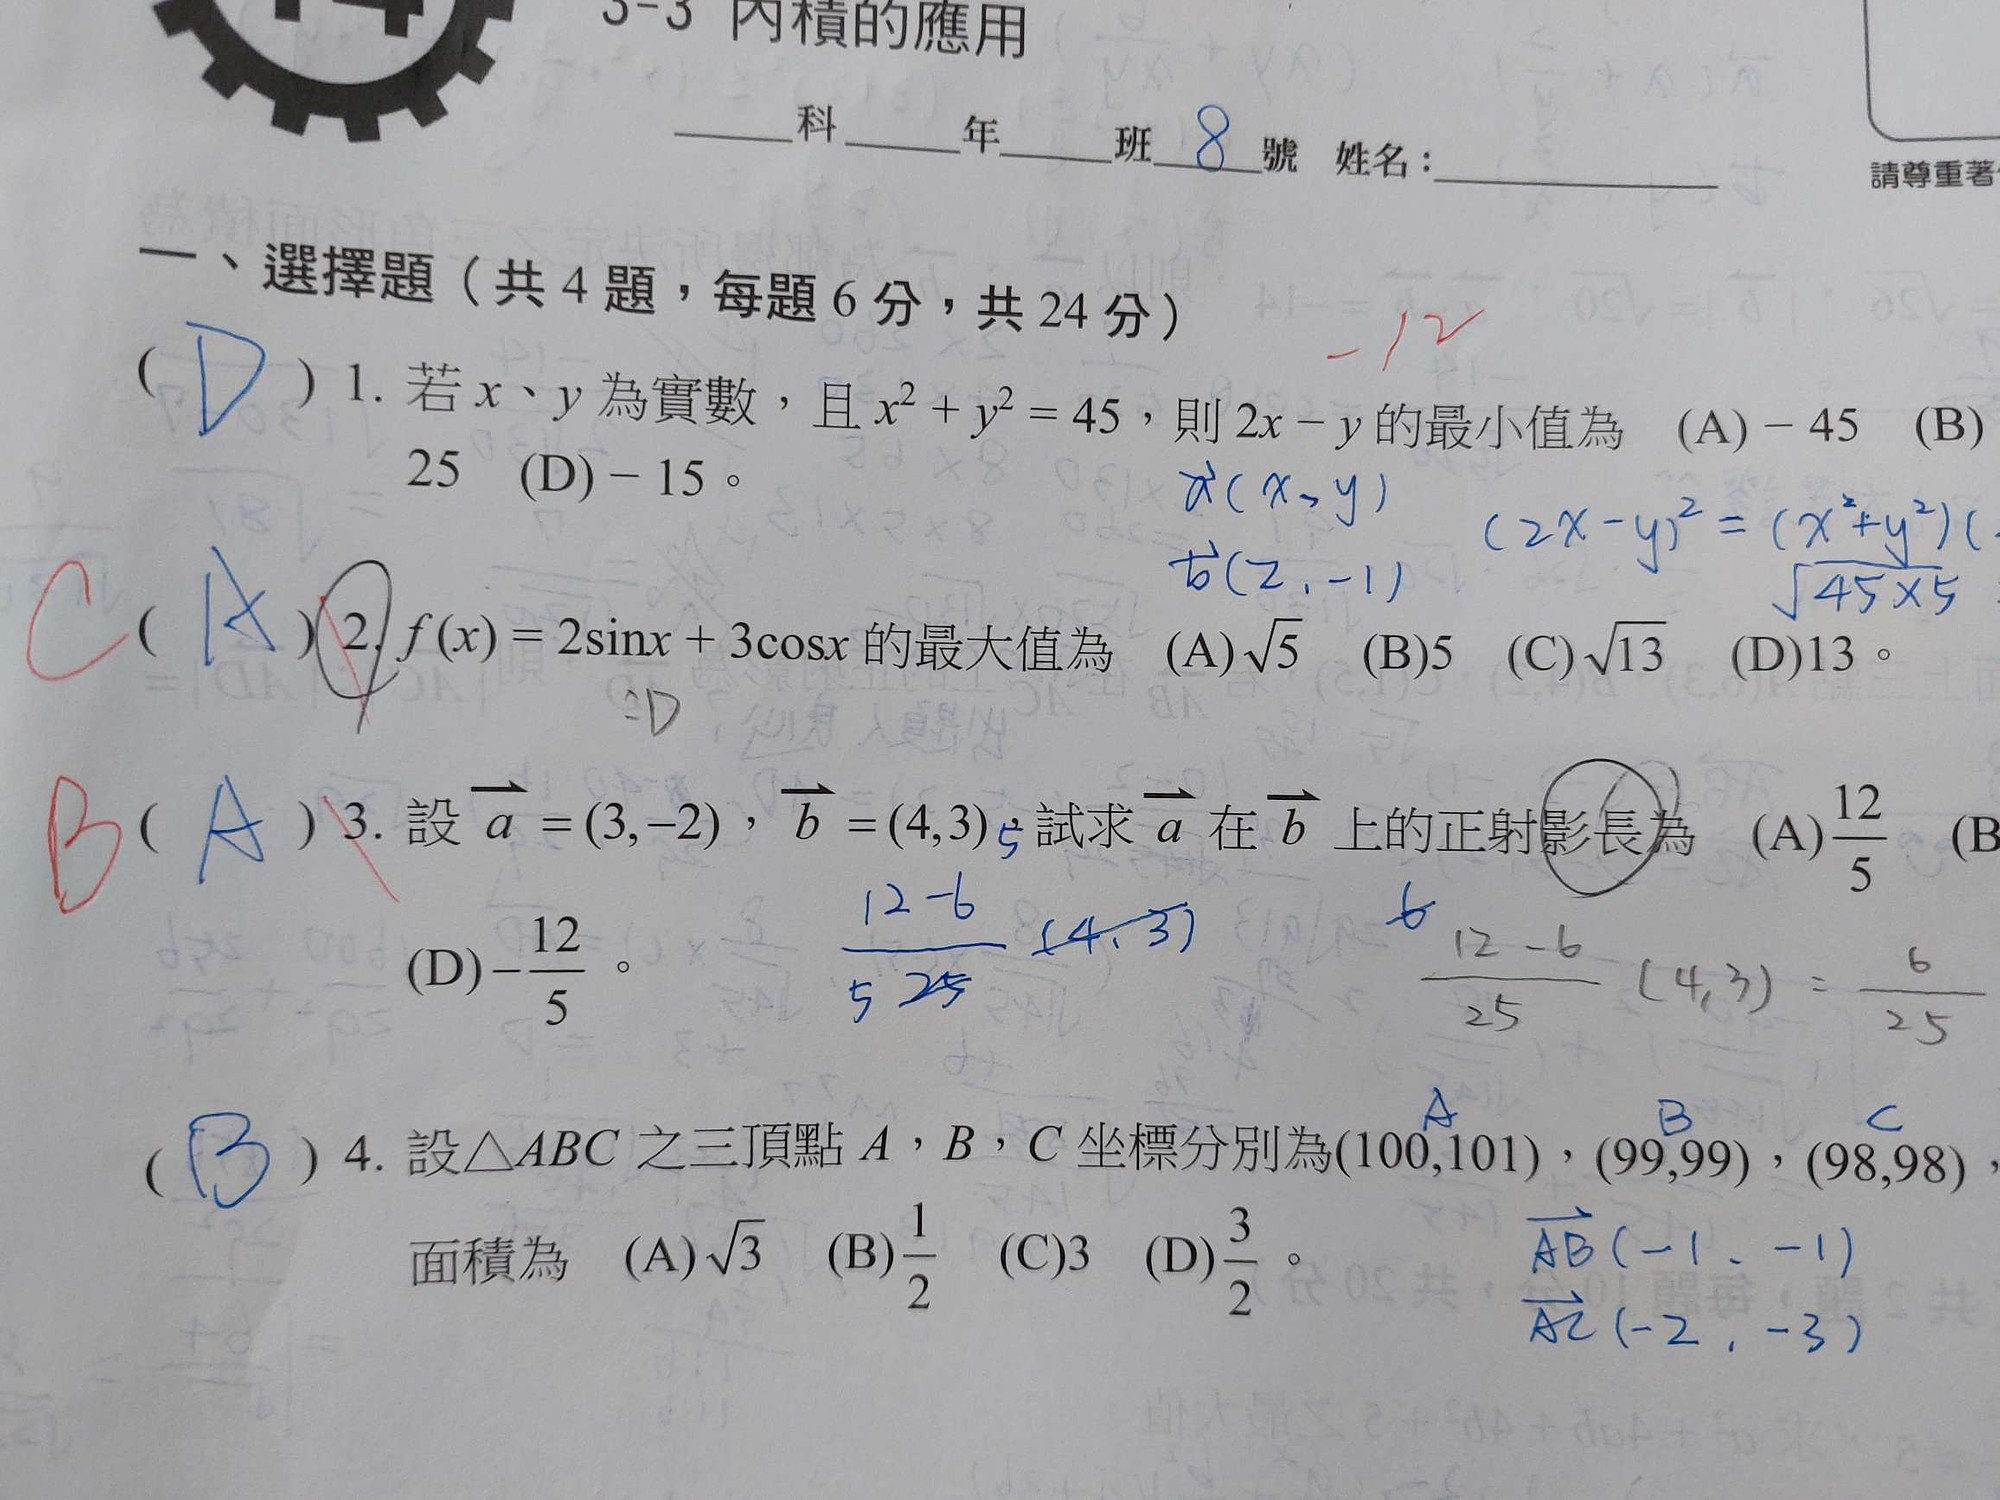 3-3 內積的應用
科 年 班 8 號 姓名：
請尊重著
一、選擇題（共 4 題，每題 6 分，共 24 分）
-12
( D ) 1. 若 x、y 為實數，且 x² + y² = 45，則 2x − y 的最小值為 (A) − 45 (B)
25 (D) − 15。
a⃗(x, y)
(2x-y)² = (x²+y²)(
b⃗(2, -1)
√45×5
C ( A ) 2. f (x) = 2sinx + 3cosx 的最大值為 (A)√5 (B)5 (C)√13 (D)13。
B ( A ) 3. 設 a⃗ = (3,−2)，b⃗ = (4,3)，試求 a⃗ 在 b⃗ 上的正射影長為 (A)12/5 (B
(D)−12/5。
12-6/5 25 (4,3)
6
12-6/25 (4,3) = 6/25
A B C
( B ) 4. 設△ABC 之三頂點 A，B，C 坐標分別為(100,101)，(99,99)，(98,98)，
面積為 (A)√3 (B)1/2 (C)3 (D)3/2。
AB⃗(-1, -1)
AC⃗(-2, -3)